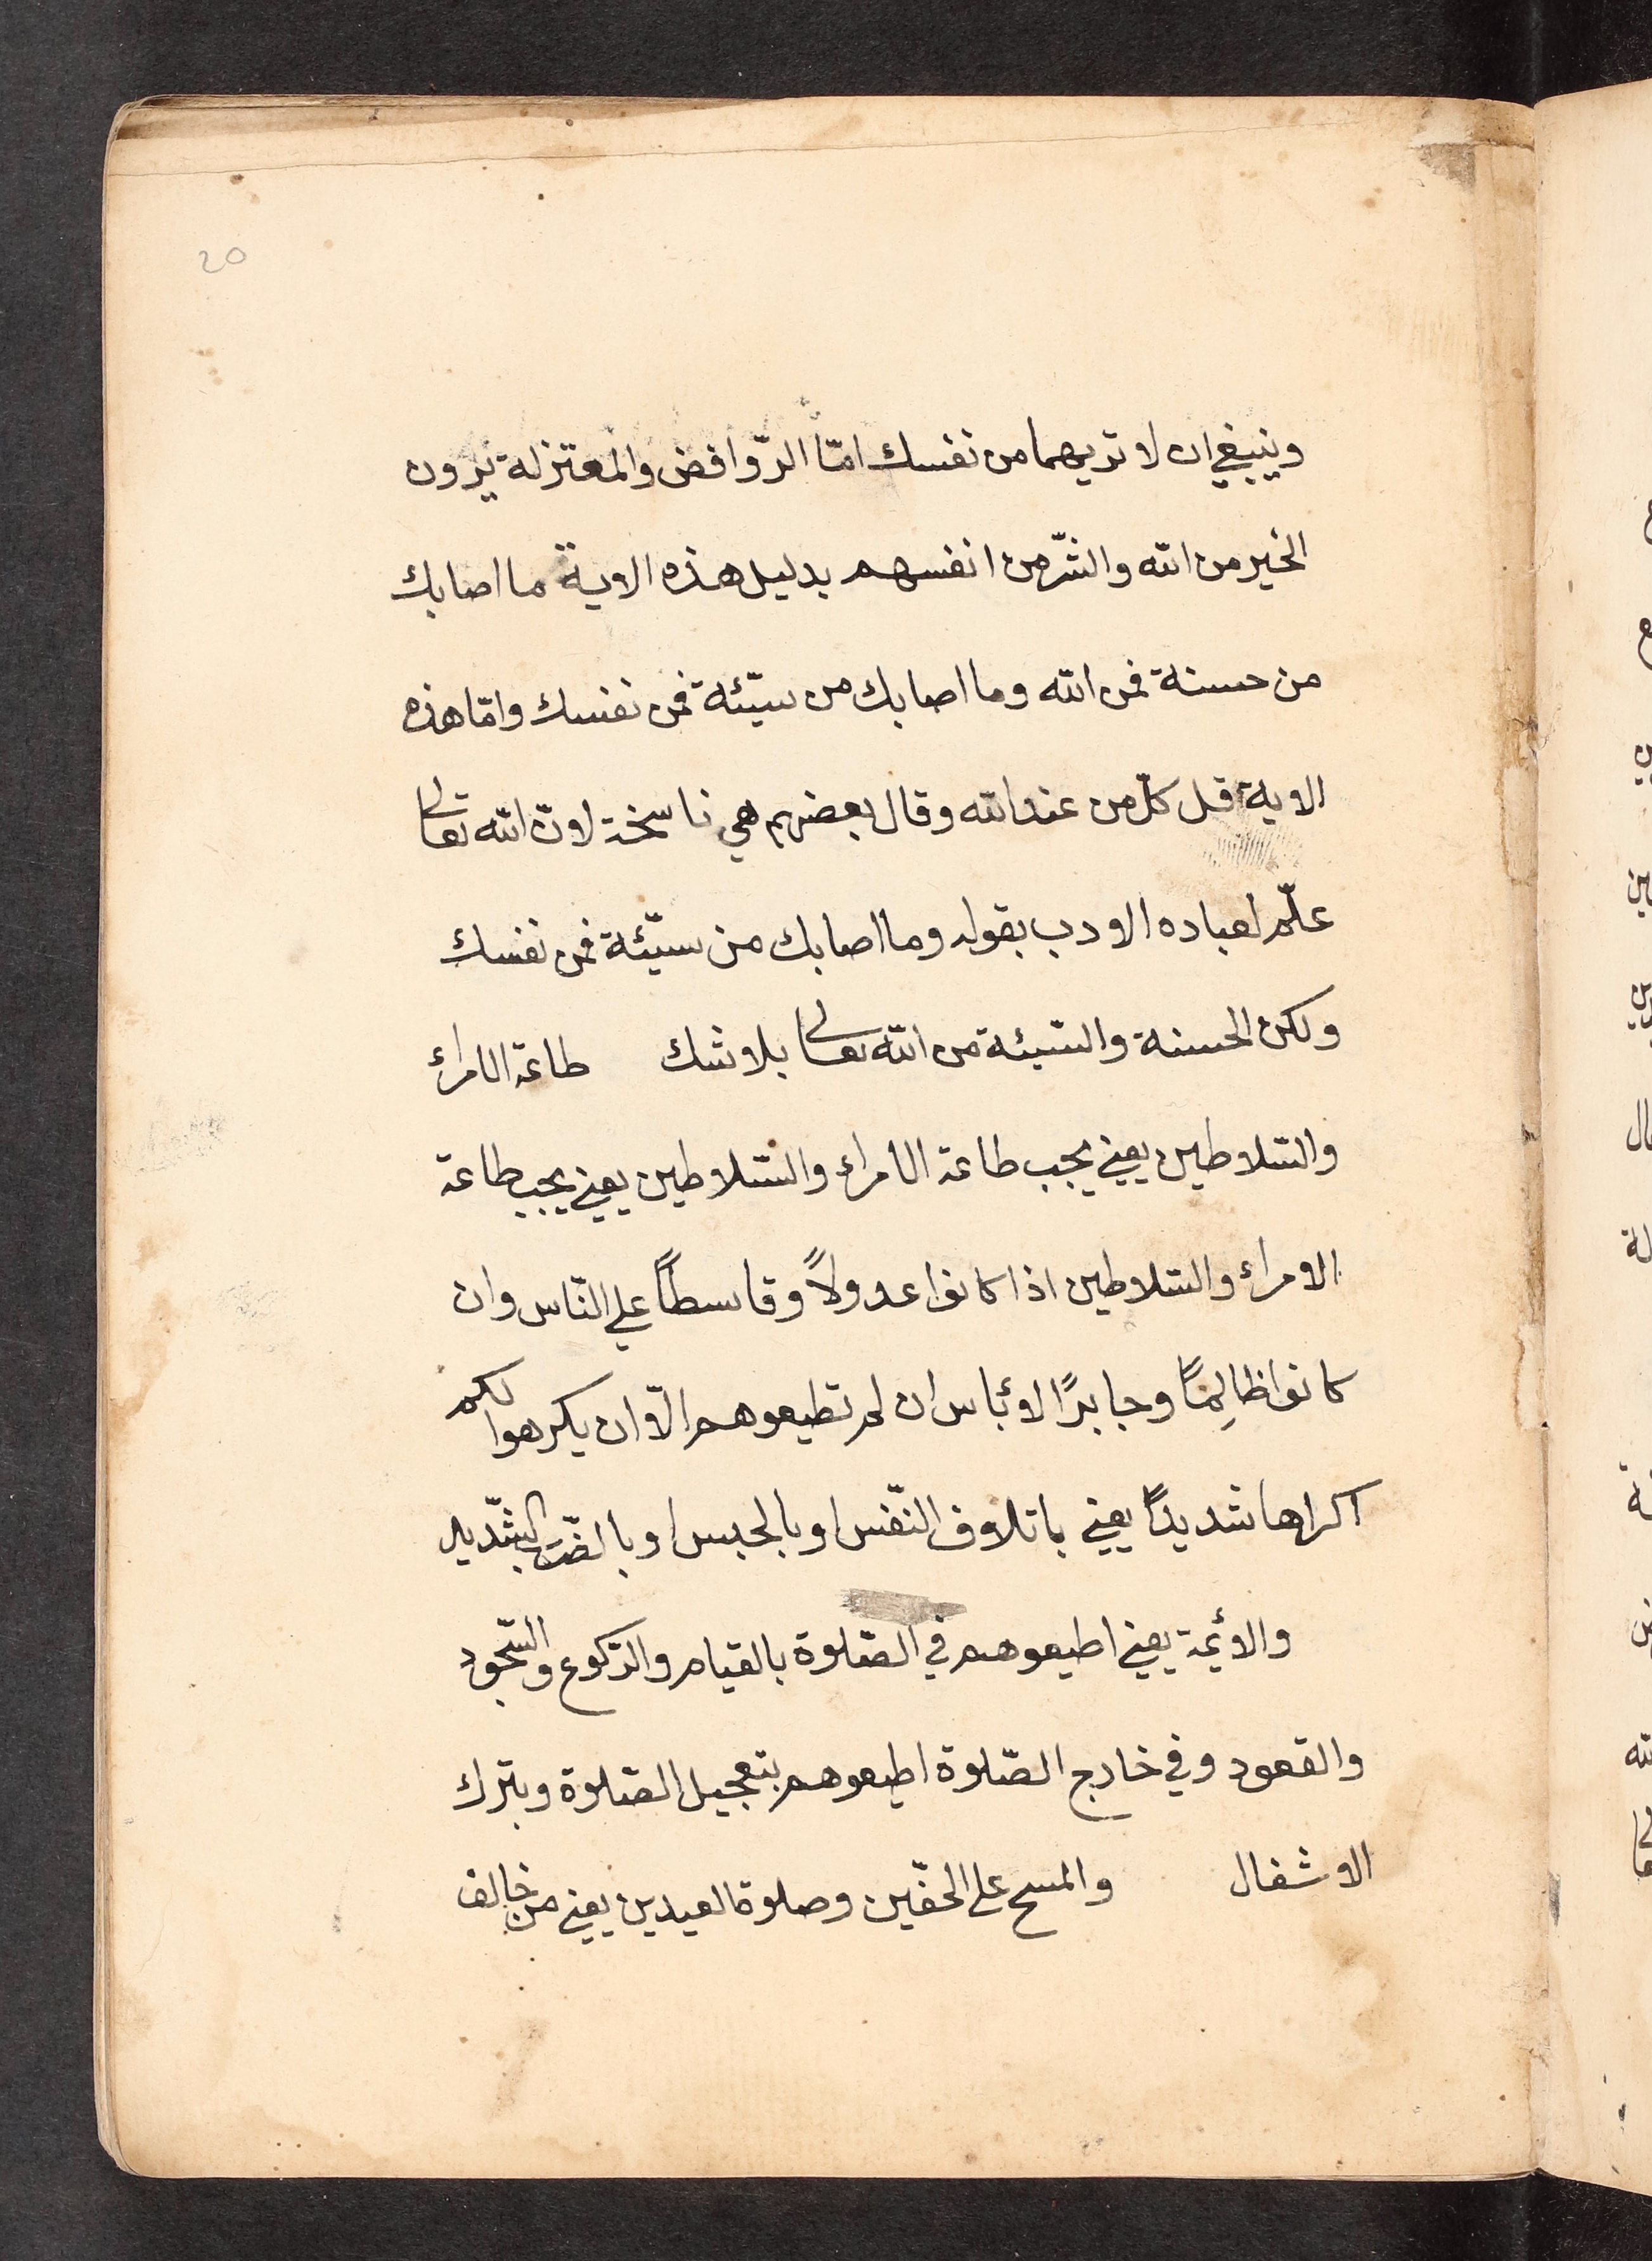 20
وينبغي ان لا تريهما من نفسك امّا الرّوافض والمعتزلة يرون
الخير من الله والشّر من انفسهم بدليل هذه الاية ما اصابك
من حسنة فمن الله وما اصابك من سيّئة فمن نفسك وامّا هذه
الاية قل كلّ من عند الله وقال بعضهم هي ناسخة لانّ الله تعالى
علّم لعباده الادب بقوله وما اصابك من سيّئة فمن نفسك
ولكن الحسنة والسّيئة من الله تعالى بلا شك طاعة الامراء
والسّلاطين يعني يجب طاعة الامراء والسّلاطين يعني يجب طاعة
الامراء والسّلاطين اذا كانوا عدولاً وقاسطاً على النّاس وان
كانوا ظالِماً وجابرًا لا بأس ان لم تطيعوهم الّا ان يكرهوا لكم
اكراها شديداً يعني باتلاف النّفس او بالحبس او بالضّرب الشّديد
والائمة يعني اطيعوهم في الصّلوة بالقيام والرّكوع والسّجود
والقعود وفي خارج الصّلوة اطيعوهم بتعجيل الصّلوة وبترك
الاشغال والمسح على الخفّين وصلوة العيدين يعني من خالف